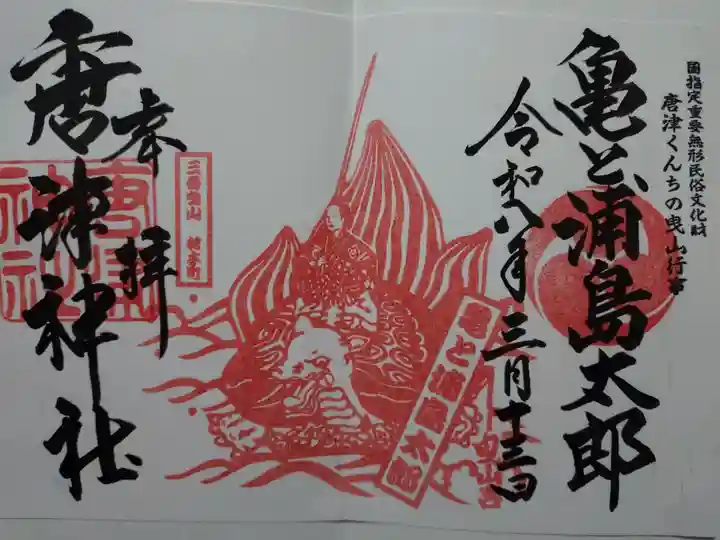 国指定重要無形民俗文化財
唐津くんちの曳山行事
亀と浦島太郎
令和八年三月十三日
亀と浦島太郎
三番曳山 材木町
奉拝
唐津神社
唐津神社